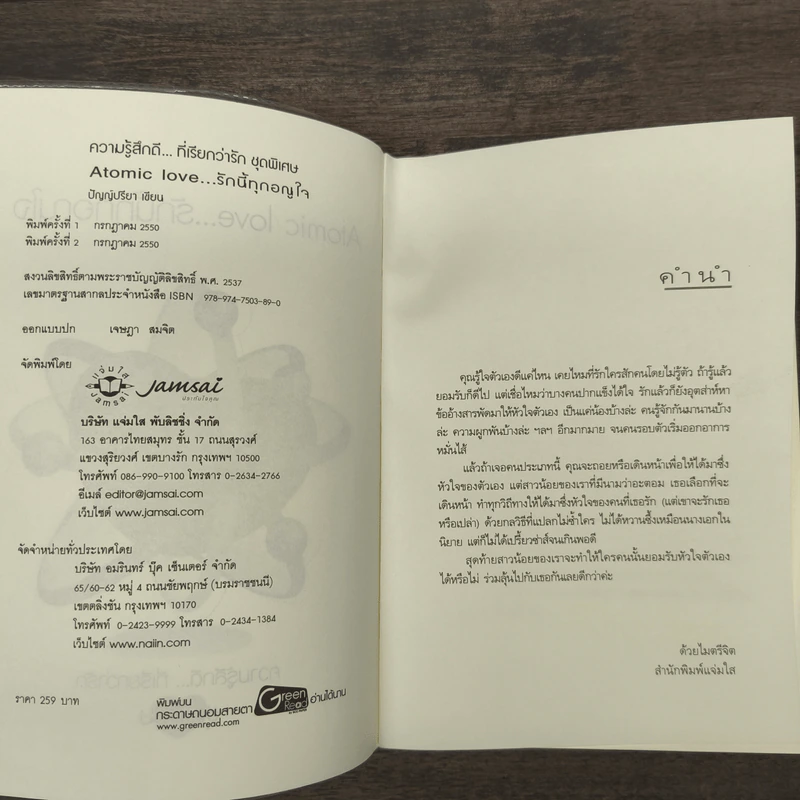 ความรู้สึกดี... ที่เรียกว่ารัก ชุดพิเศษ
Atomic love...รักนี้ทุกอณูใจ
ปัญญ์ปรียา เขียน
พิมพ์ครั้งที่ 1 กรกฎาคม 2550
พิมพ์ครั้งที่ 2 กรกฎาคม 2550
สงวนลิขสิทธิ์ตามพระราชบัญญัติลิขสิทธิ์ พ.ศ. 2537
เลขมาตรฐานสากลประจำหนังสือ ISBN 978-974-7503-89-0
ออกแบบปก เจษฎา สมจิต
จัดพิมพ์โดย
แจ่มใส
Jamsai
Jamsai
ประทับใจคุณ
บริษัท แจ่มใส พับลิชชิ่ง จำกัด
163 อาคารไทยสมุทร ชั้น 17 ถนนสุรวงศ์
แขวงสุริยวงศ์ เขตบางรัก กรุงเทพฯ 10500
โทรศัพท์ 086-990-9100 โทรสาร 0-2634-2766
อีเมล์ editor@jamsai.com
เว็บไซต์ www.jamsai.com
จัดจำหน่ายทั่วประเทศโดย
บริษัท อมรินทร์ บุ๊ค เซ็นเตอร์ จำกัด
65/60-62 หมู่ 4 ถนนชัยพฤกษ์ (บรมราชชนนี)
เขตตลิ่งชัน กรุงเทพฯ 10170
โทรศัพท์ 0-2423-9999 โทรสาร 0-2434-1384
เว็บไซต์ www.naiin.com
ราคา 259 บาท
พิมพ์บน
กระดาษถนอมสายตา Green Read อ่านได้นาน
www.greenread.com
คำนำ
คุณรู้ใจตัวเองดีแค่ไหน เคยไหมที่รักใครสักคนโดยไม่รู้ตัว ถ้ารู้แล้ว
ยอมรับก็ดีไป แต่เชื่อไหมว่าบางคนปากแข็งได้ใจ รักแล้วก็ยังอุตส่าห์หา
ข้ออ้างสารพัดมาให้หัวใจตัวเอง เป็นแค่น้องบ้างล่ะ คนรู้จักกันมานานบ้าง
ล่ะ ความผูกพันบ้างล่ะ ฯลฯ อีกมากมาย จนคนรอบตัวเริ่มออกอาการ
หมั่นไส้
แล้วถ้าเจอคนประเภทนี้ คุณจะถอยหรือเดินหน้าเพื่อให้ได้มาซึ่ง
หัวใจของตัวเอง แต่สาวน้อยของเราที่มีนามว่าอะตอม เธอเลือกที่จะ
เดินหน้า ทำทุกวิถีทางให้ได้มาซึ่งหัวใจของคนที่เธอรัก (แต่เขาจะรักเธอ
หรือเปล่า) ด้วยกลวิธีที่แปลกไม่ซ้ำใคร ไม่ได้หวานซึ้งเหมือนนางเอกใน
นิยาย แต่ก็ไม่ได้เปรี้ยวซ่าส์จนเกินพอดี
สุดท้ายสาวน้อยของเราจะทำให้ใครคนนั้นยอมรับหัวใจตัวเอง
ได้หรือไม่ ร่วมลุ้นไปกับเธอกันเลยดีกว่าค่ะ
ด้วยไมตรีจิต
สำนักพิมพ์แจ่มใส